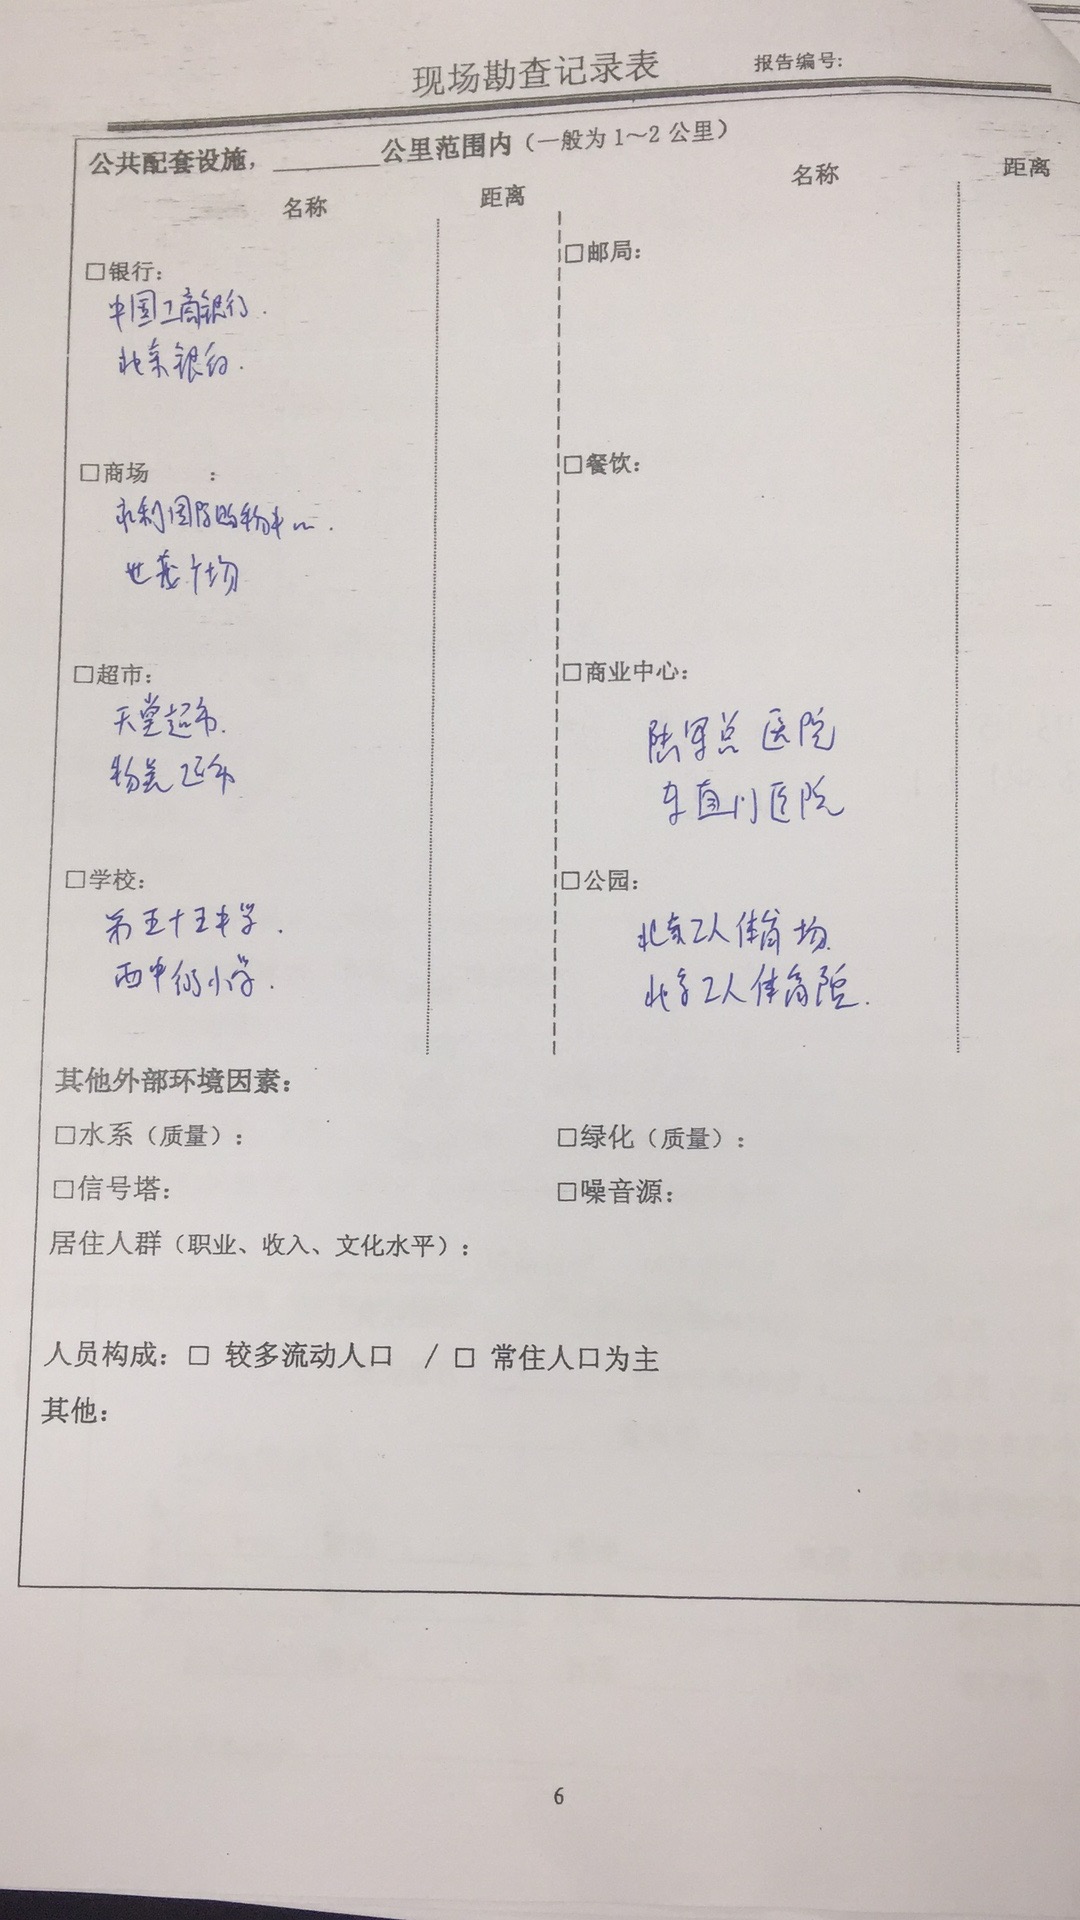 现场勘查记录表
报告编号:
公共配套设施，________公里范围内（一般为1～2公里）
名称 距离 名称 距离
□银行:
中国工商银行.
北京银行.
□邮局:
□商场 :
永利国际购物中心.
世茂广场
□餐饮:
□超市:
天堂超市.
物美超市
□商业中心:
陆军总医院
东直门医院
□学校:
第五十五中学.
西中街小学.
□公园:
北京工人体育场.
北京工人体育院.
其他外部环境因素:
□水系（质量）: □绿化（质量）:
□信号塔: □噪音源:
居住人群（职业、收入、文化水平）:
人员构成: □ 较多流动人口 / □ 常住人口为主
其他:
6